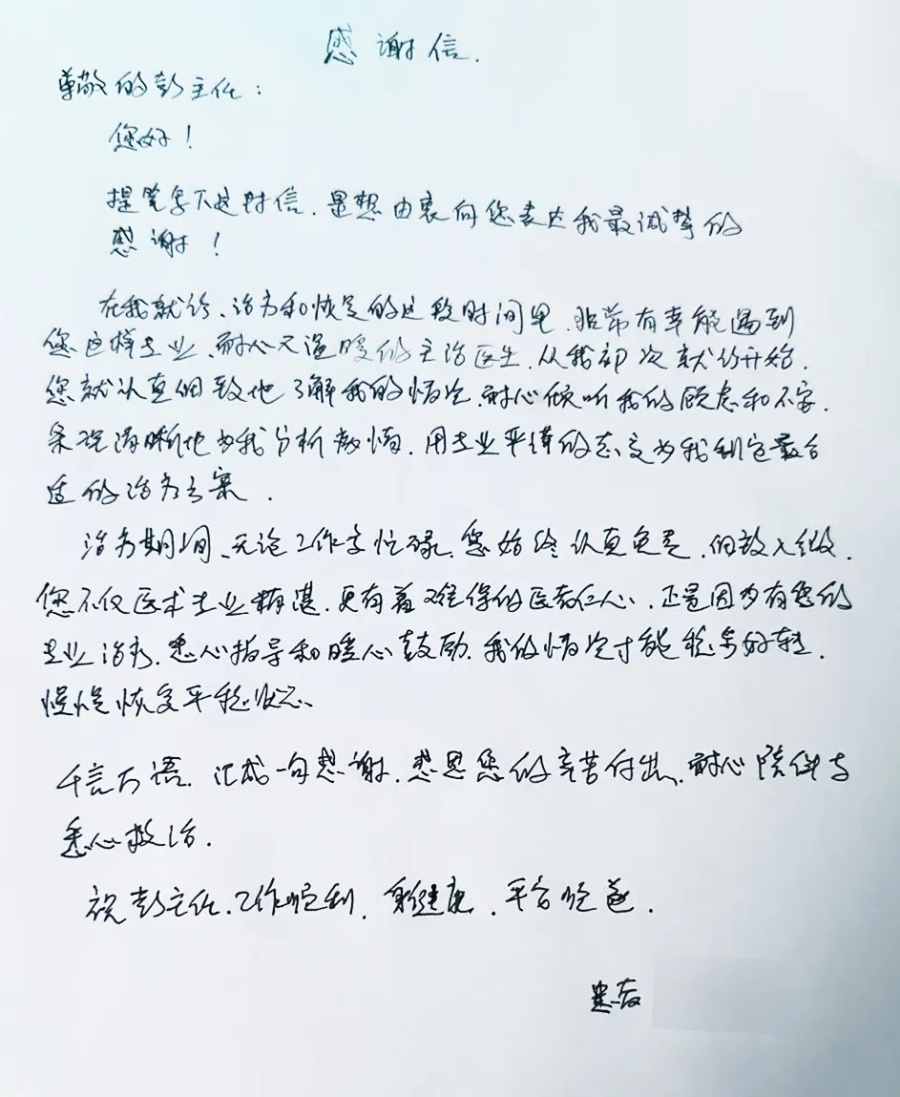 感谢信.
尊敬的彭主任:
您好!
提笔写下这封信.是想由衷向您表达我最诚挚的
感谢!
在我就诊、治疗和恢复的这段时间里.非常有幸能遇到
您这样专业、耐心又温暖的主治医生.从我初次就诊开始.
您就认真细致地了解我的情况.耐心倾听我的顾虑和不安.
条理清晰地为我分析病情.用专业平缓的态度为我制定最合
适的治疗方案.
治疗期间、无论工作多忙碌.您始终认真负责.细致入微.
您不仅医术专业精湛.更有着难得的医者仁心.正是因为有您的
专业治疗.悉心指导和暖心鼓励.我的情况才能稳步好转.
慢慢恢复平稳状态、
千言万语.汇成一句感谢.感恩您的辛苦付出、耐心陪伴与
悉心救治.
祝彭主任、工作顺利.身健康.平安顺遂.
患者